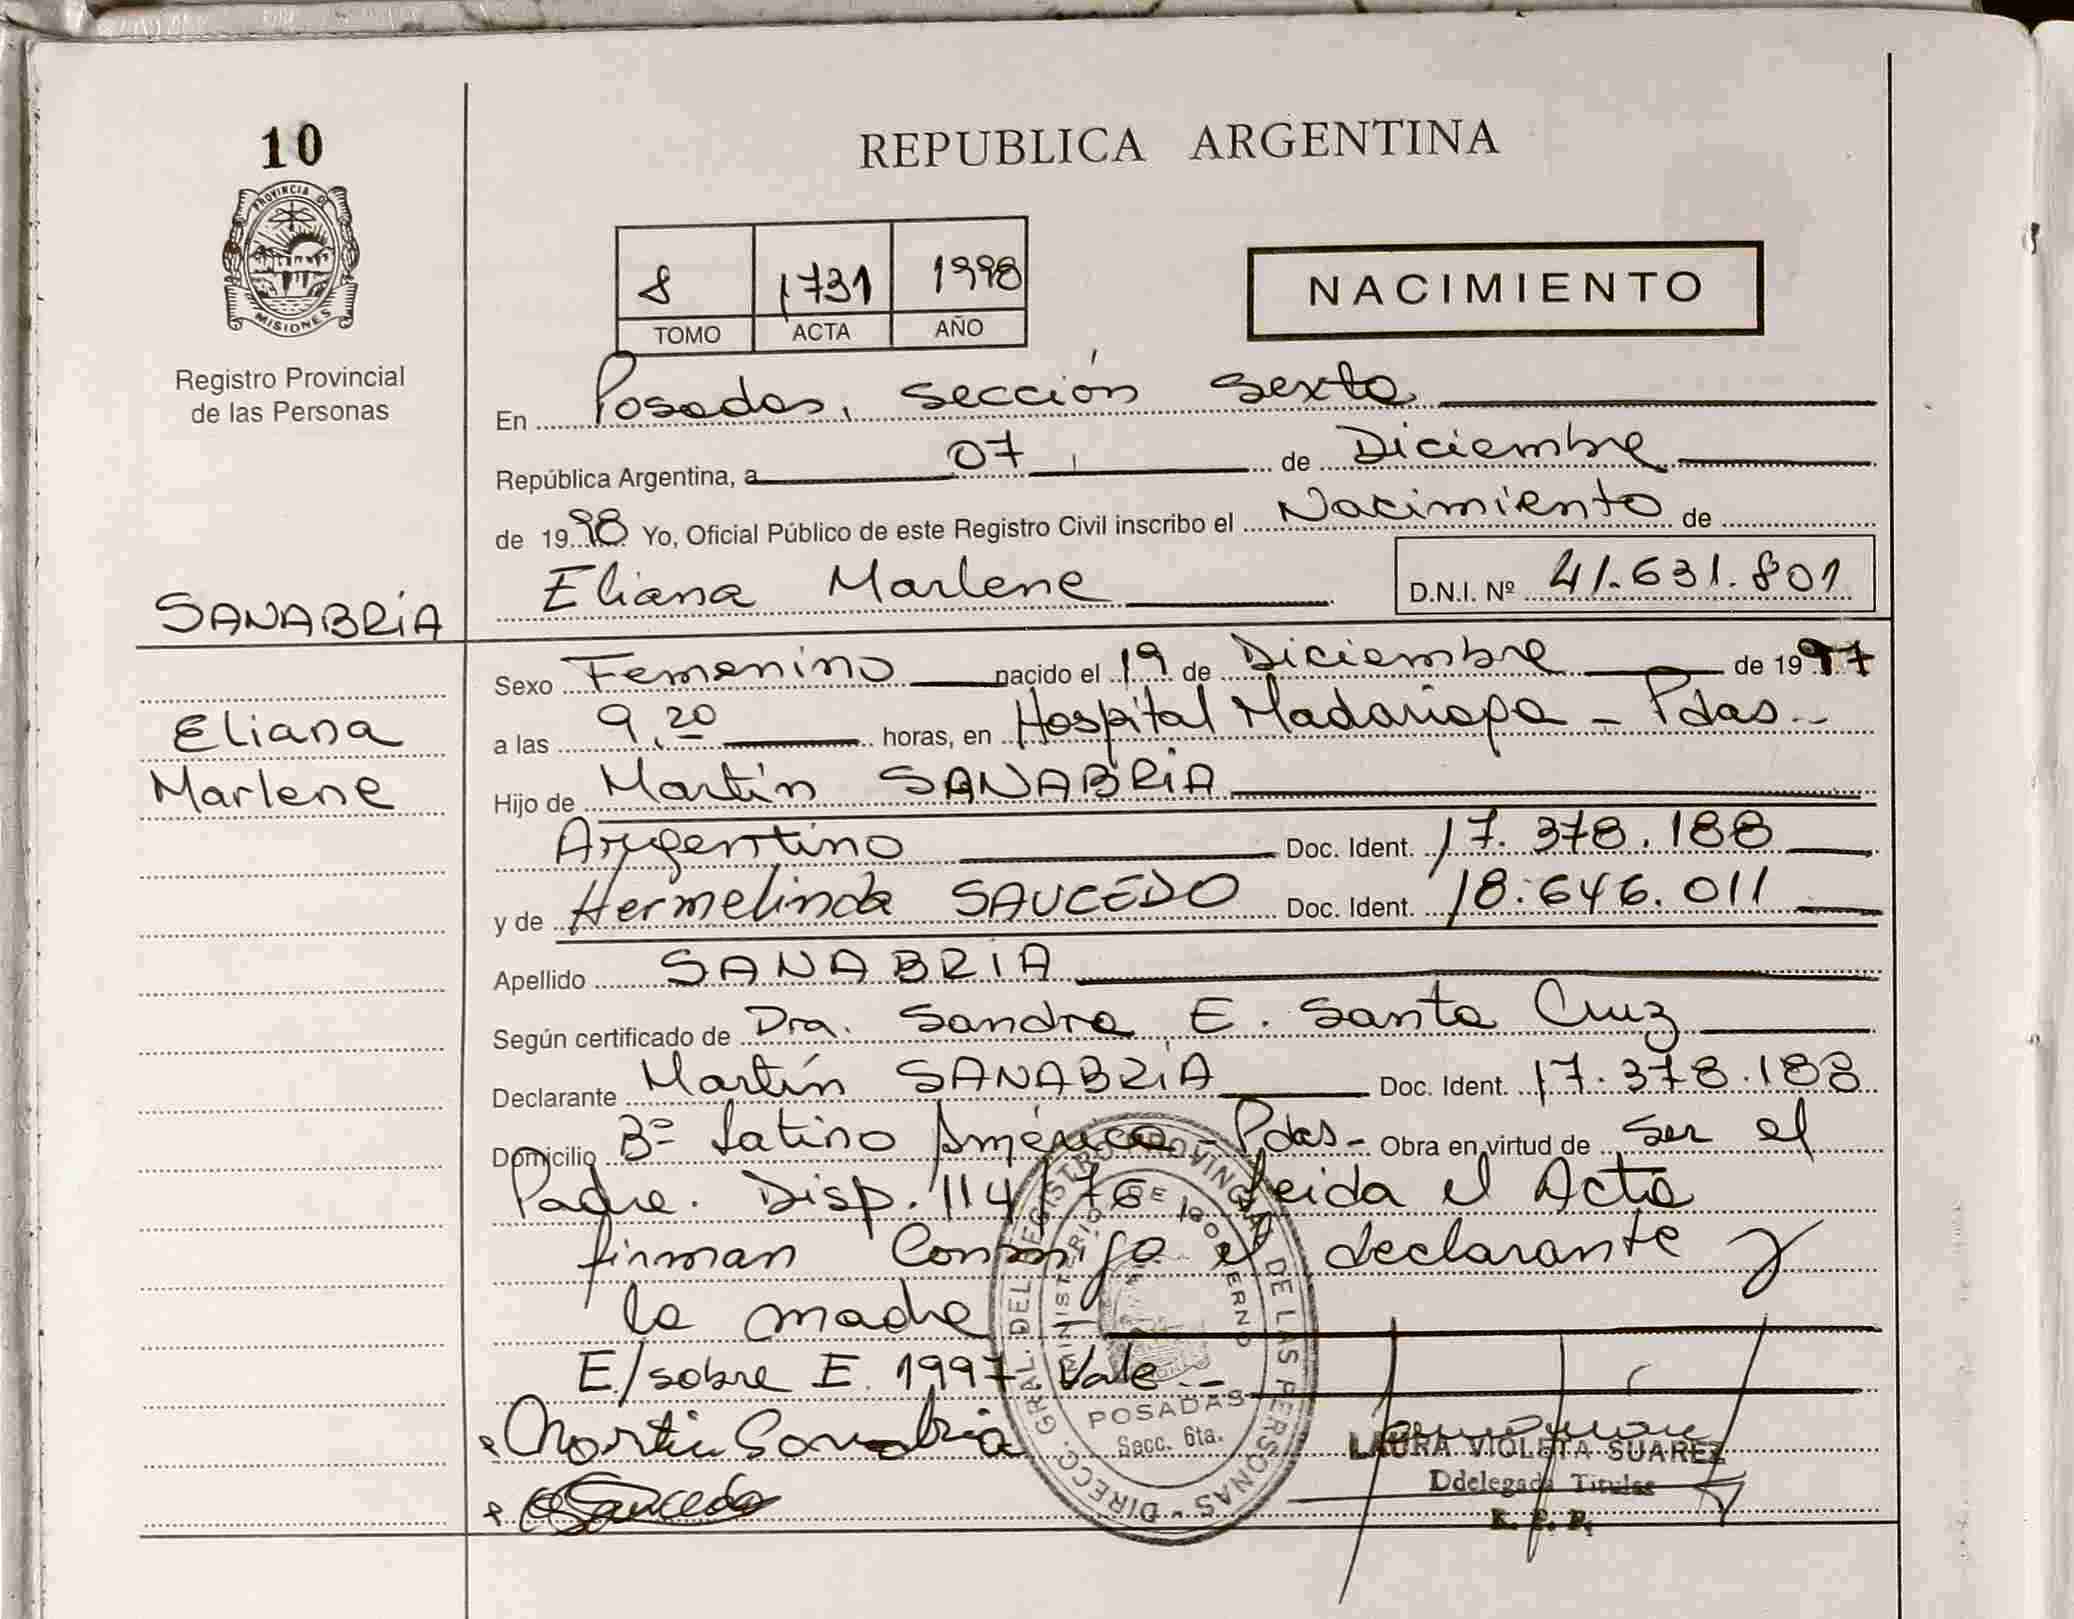 10
PROVINCIA DE
MISIONES
Registro Provincial
de las Personas
SANABRIA
Eliana
Marlene
REPUBLICA ARGENTINA
8 1731 1998
TOMO ACTA AÑO
NACIMIENTO
En Posadas, sección sexta
República Argentina, a 07 de Diciembre
de 1998 Yo, Oficial Público de este Registro Civil inscribo el Nacimiento de
Eliana Marlene D.N.I. Nº 41.631.801
Sexo Femenino nacido el 19 de Diciembre de 1997
a las 9,20 horas, en Hospital Madariaga - Pdas -
Hijo de Martín SANABRIA
Argentino Doc. Ident. 17.378.188
y de Hermelinda SAUCEDO Doc. Ident. 18.646.011
Apellido SANABRIA
Según certificado de Dra. Sandra E. Santa Cruz
Declarante Martín SANABRIA Doc. Ident. 17.378.188
Domicilio Bº Latino América - Pdas - Obra en virtud de ser el
Padre. Disp. 114/76 Leida el Acta
firman Conmigo el declarante y
la madre
E/sobre E. 1997 Vale. -
Martin Sanabria
Saucedo
DIRECC. GRAL. DEL REGISTRO PROVINCIAL DE LAS PERSONAS
MINISTERIO DE GOBIERNO
POSADAS
Secc. 6ta.
LAURA VIOLETA SUAREZ
Ddelegada Titular